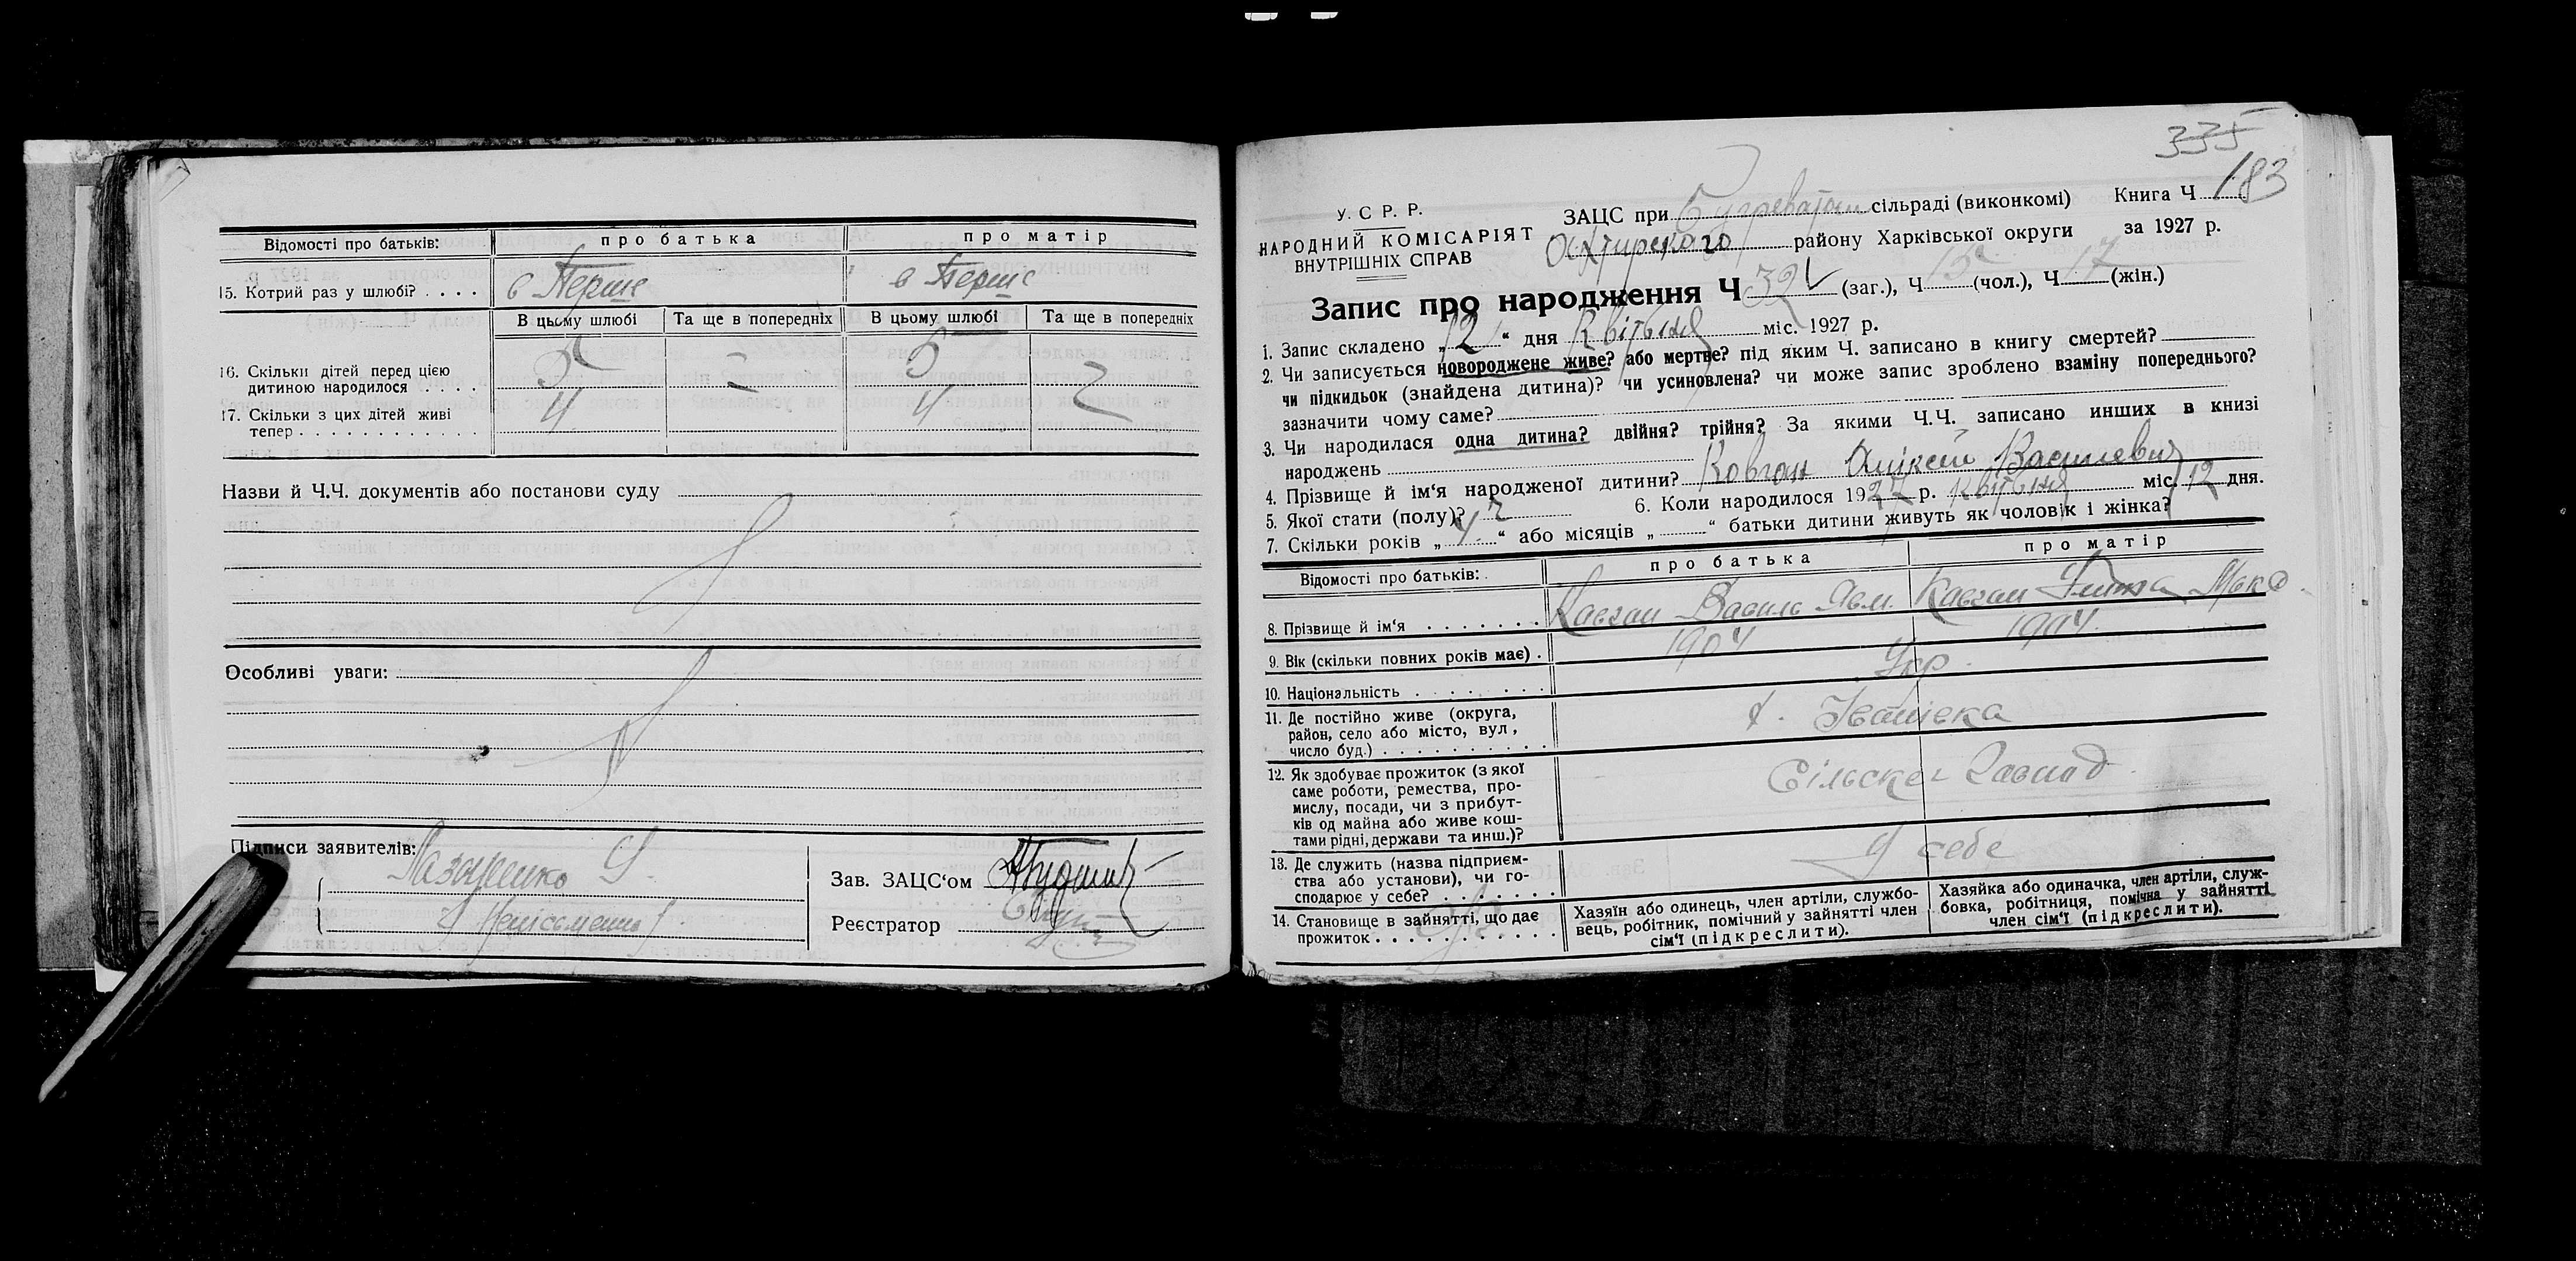 Відомості про батьків: про батька про матір
15. Котрий раз у шлюбі? . . . . в Перше в Перше
В цьому шлюбі Та ще в попередніх В цьому шлюбі Та ще в попередніх
16. Скільки дітей перед цією
дитиною народилося . . . . 5 5
17. Скільки з цих дітей живі
тепер . . . . . . . . . . . . 4 4
Назви й Ч.Ч. документів або постанови суду
Особливі уваги:
Підписи заявителів:
Зав. ЗАЦС‘ом
Реєстратор
335
183
У. С Р. Р.
НАРОДНИЙ КОМІСАРІЯТ
ВНУТРІШНІХ СПРАВ
ЗАЦС при сільраді (виконкомі) Книга Ч
Охтирского району Харківської округи за 1927 р.
Запис про народження Ч 32 (заг.), Ч 15 (чол.), Ч 17 (жін.)
1. Запис складено „ 12 “ дня Квітня міс. 1927 р.
2. Чи записується новороджене живе? або мертве? під яким Ч. записано в книгу смертей?
чи підкидьок (знайдена дитина)? чи усиновлена? чи може запис зроблено взаміну попереднього?
зазначити чому саме?
3. Чи народилася одна дитина? двійня? трійня? За якими Ч.Ч. записано инших в книзі
народжень
4. Прізвище й ім‘я народженої дитини? Ковган Оліксій Василевич
5. Якої стати (полу)? ч 6. Коли народилося 1927 р. Квітня міс. 12 дня.
7. Скільки років „ 4 “ або місяців „ “ батьки дитини живуть як чоловік і жінка?
Відомості про батьків: про батька про матір
8. Прізвище й ім‘я . . . . . . . Ковган Василь Ковган
9. Вік (скільки повних років має) . 1904 1904
10. Національність . . . . . . . . Укр.
11. Де постійно живе (округа,
район, село або місто, вул,
число буд.) . . . . . . . . . . х. Іванівка
12. Як здобуває прожиток (з якої
саме роботи, ремества, про-
мислу, посади, чи з прибут-
ків од майна або живе кош-
тами рідні, держави та инш.)?
Сільске
13. Де служить (назва підприєм-
ства або установи), чи го-
сподарює у себе? . . . . . . У себе
14. Становище в зайнятті, що дає
прожиток . . . . . . . . . . .
Хазяїн або одинець, член артіли, службо-
вець, робітник, помічний у зайнятті член
сім‘ї (підкреслити).
Хазяйка або одиначка, член артіли, служ-
бовка, робітниця, помічна у зайнятті
член сім‘ї (підкреслити).